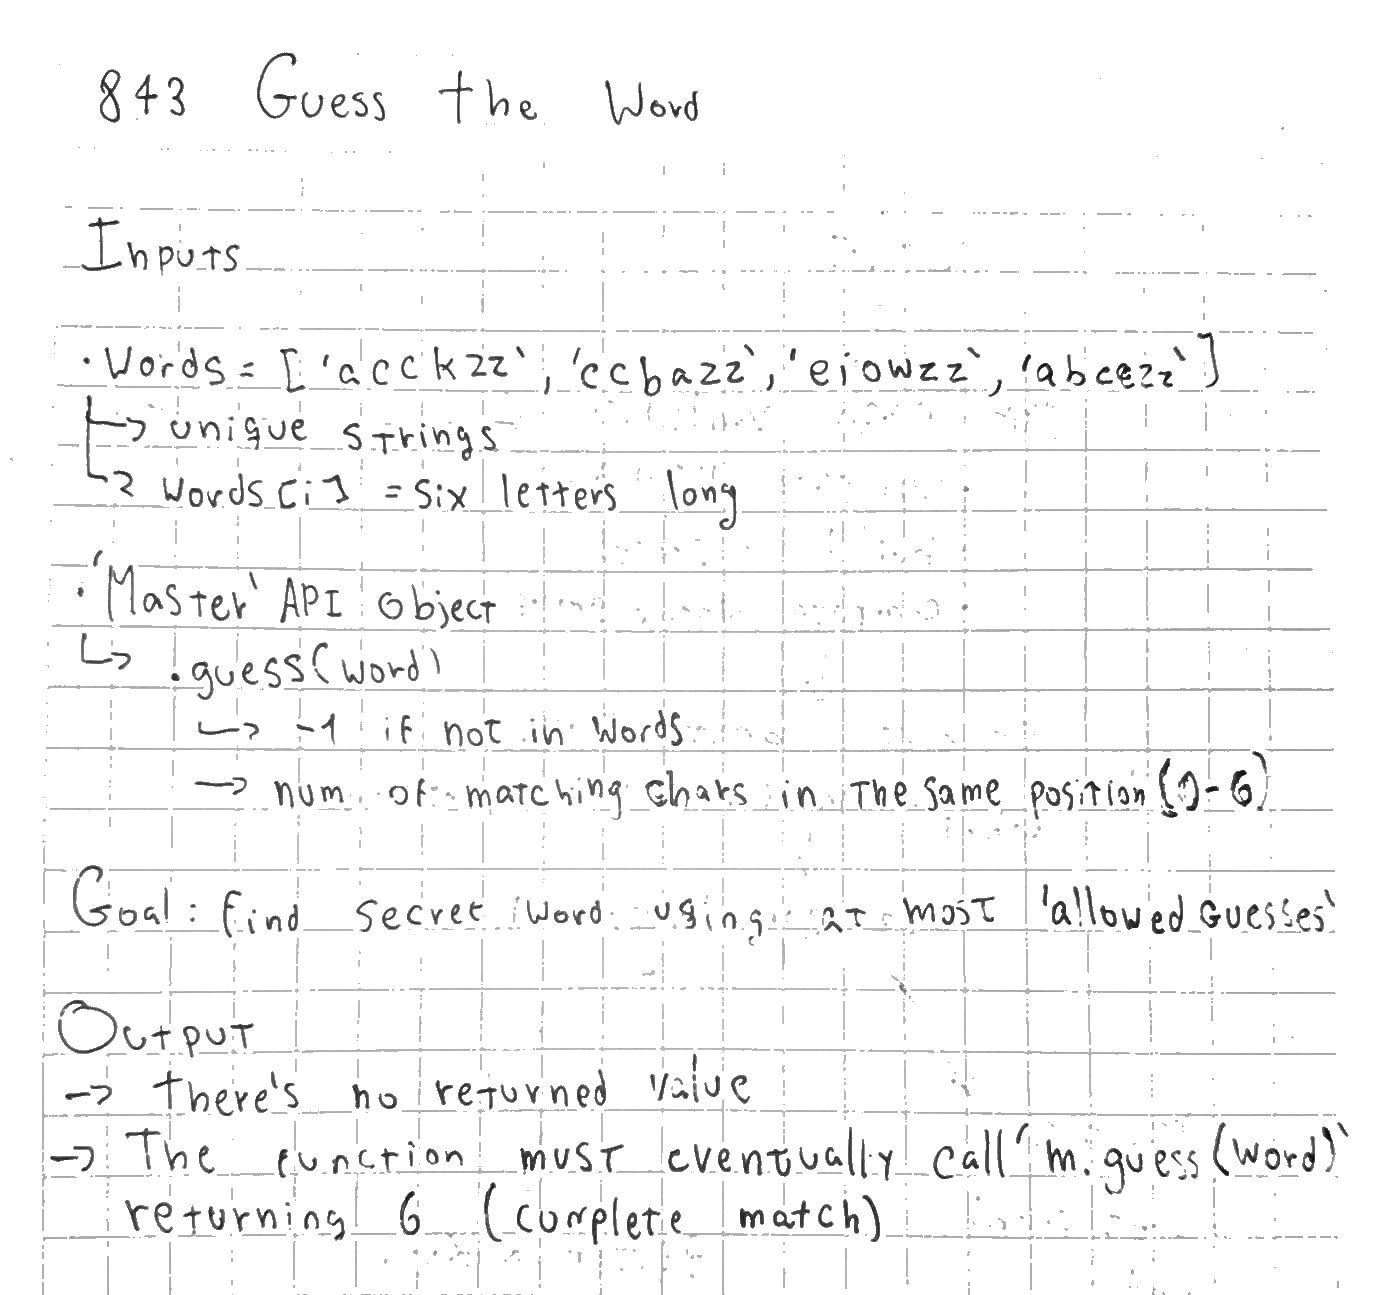 843 Guess the Word
Inputs
· Words = ['acckzz', 'ccbazz', 'eiowzz', 'abcczz']
→ unique strings
→ Words[i] = six letters long
· 'Master' API object
↳ .guess(word)
↳ -1 if not in words
→ num of matching chars in the same position (0-6)
Goal: find secret word using at most 'allowedGuesses'
Output
→ there's no returned value
→ The function must eventually call 'm.guess(word)'
returning 6 (complete match)